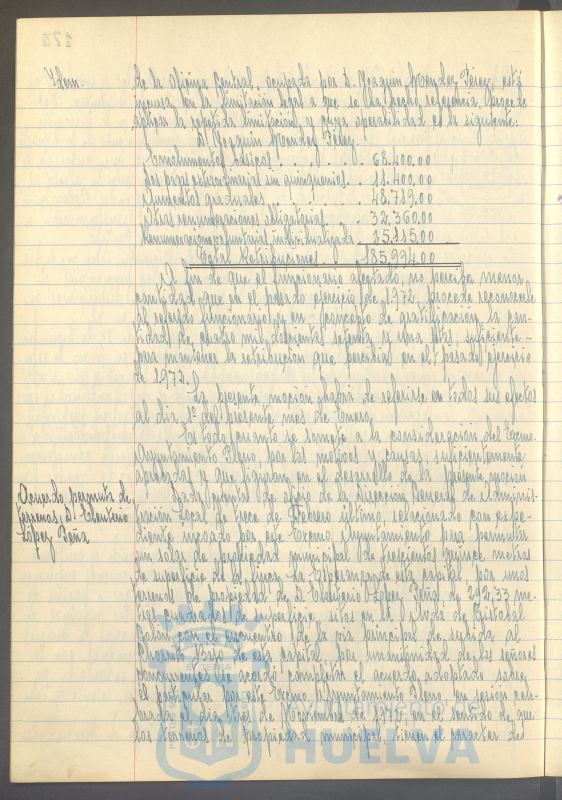 Idem.
de la Oficina Central, ocupada por D. Joaquin Mendez Pérez, está
incursa en la limitación legal a que se ha hecho referencia, procede
aplicar la repetida limitación y cuya operabilidad es la siguiente:
D. Joaquin Mendez Pérez.
Emolumentos básicos . . . . . 68.400,00
Dos pagas extraordinarias sin quinquenios . . 11.400,00
Aumentos graduales . . . . 48.719,00
Otras remuneraciones obligatorias . . . 32.360,00
Remuneraciones voluntarias individualizada 25.115,00
Total Retribuciones 185.994,00
A fin de que el funcionario afectado, no perciba menor
cantidad que en el pasado ejercicio de 1.972, procede reconocerle
al referido funcionario y en concepto de gratificación la can-
tidad de cuatro mil doscientas setenta y una ptas, suficiente
para mantener la retribución que percibía en el pasado ejercicio
de 1.972.
La presente moción habrá de referirse en todos sus efectos
al dia 1º del presente mes de Enero.
Es todo cuanto se somete a la consideración del Excmo.
Ayuntamiento Pleno, por los motivos y causas, suficientemente
aprobadas y que figuran en el desarrollo de la presente moción
Acuerdo permuta de
terrenos, D. Eleuterio
López Peña
Dada cuenta de oficio de la Dirección General de Adminis-
tración Local de trece de Febrero último, relacionado con expe-
diente incoado por este Excmo. Ayuntamiento para permutar
un solar de propiedad municipal de trescientos quince metros
de superficie de la finca La Esperanza de esta capital, por unos
terrenos de propiedad de D. Eleuterio López Peña de 292,33 me-
tros cuadrados de superficie, sitos en la Avda de Cristobal
Colón, con el encuentro de la via principal de subida al
Conquero Bajo de esta capital, por unanimidad de los señores
concurrentes, se acordó completar el acuerdo adoptado sobre
el particular por este Excmo. Ayuntamiento Pleno, en sesión cele-
brada el dia tres de Noviembre de 1.972, en el sentido de que
los terrenos de propiedad municipal, tienen el carácter de
Ayuntamiento de
HUELVA